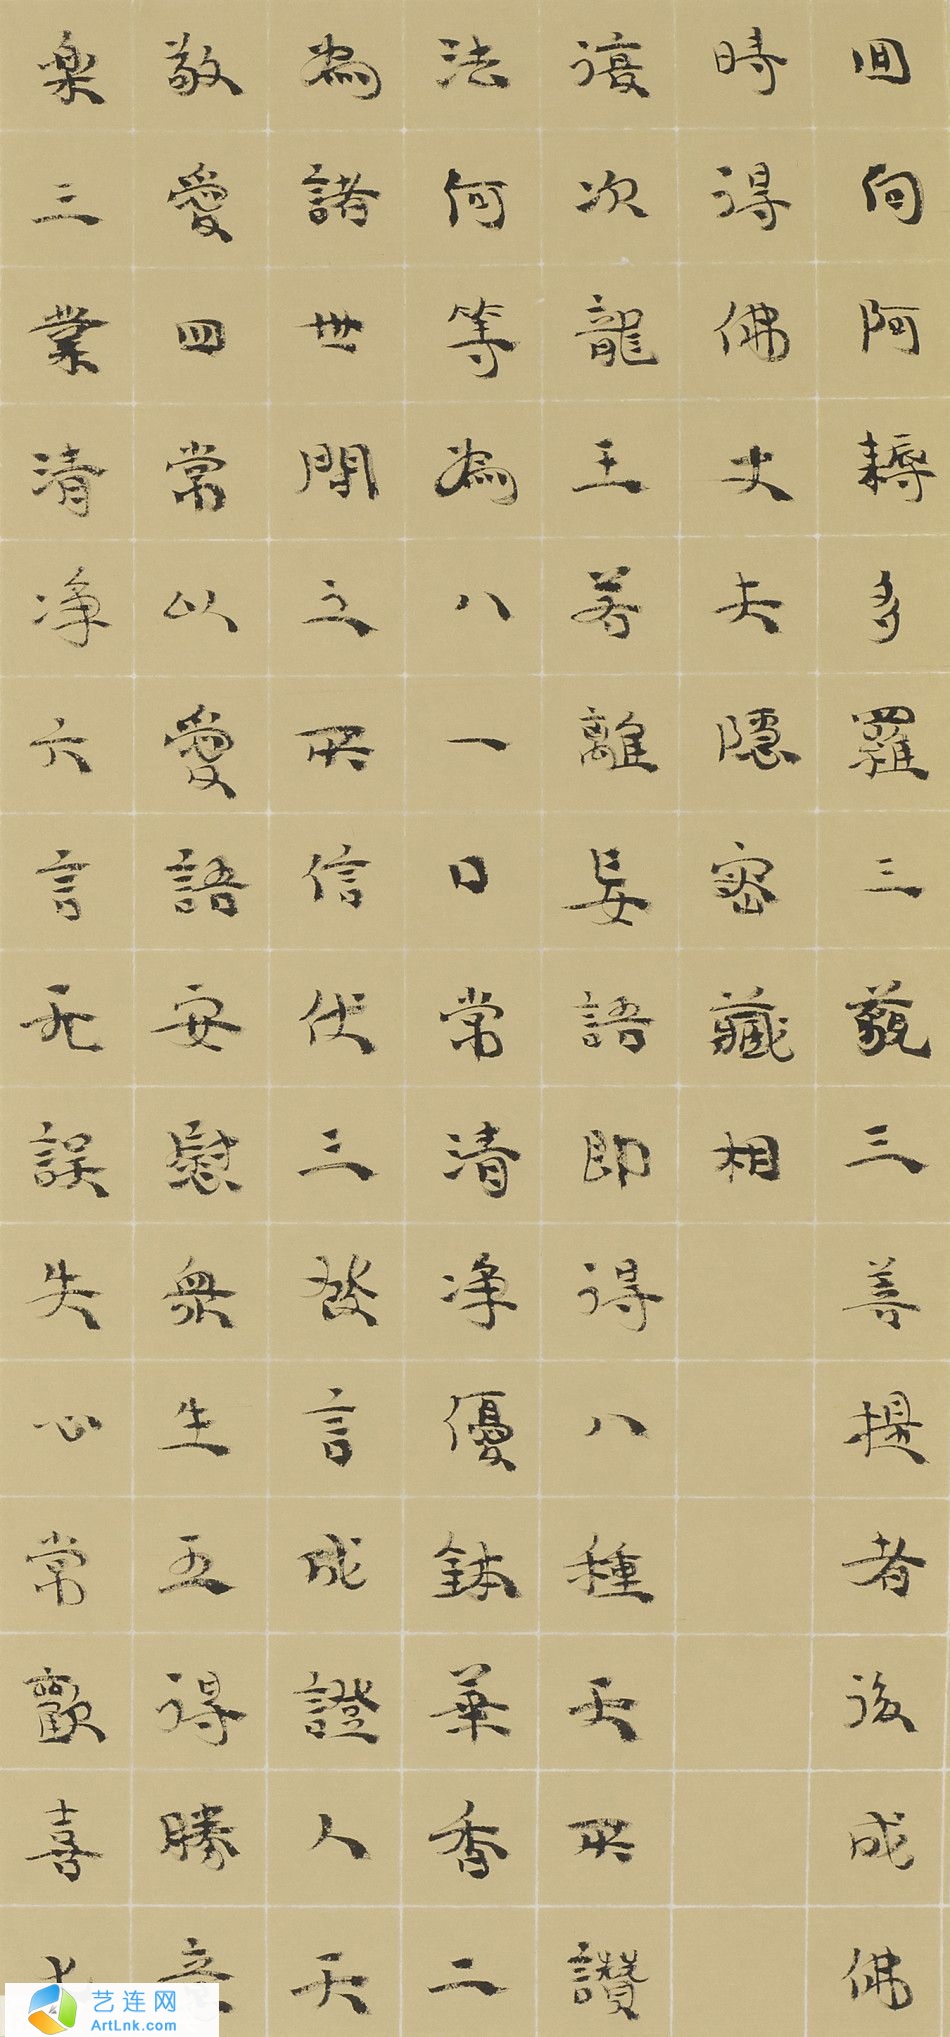 回向阿耨多羅三藐三菩提者後成佛
時得佛丈夫隱密藏相
復次龍王若離妄語即得八種天所讚
法何等為八一口常清淨優鉢華香二
為諸世間之所信伏三發言成證人天
敬愛四常以愛語安慰眾生五得勝意
楽三業清淨六言无誤失心常歡喜七
艺连网
ArtLnk.com